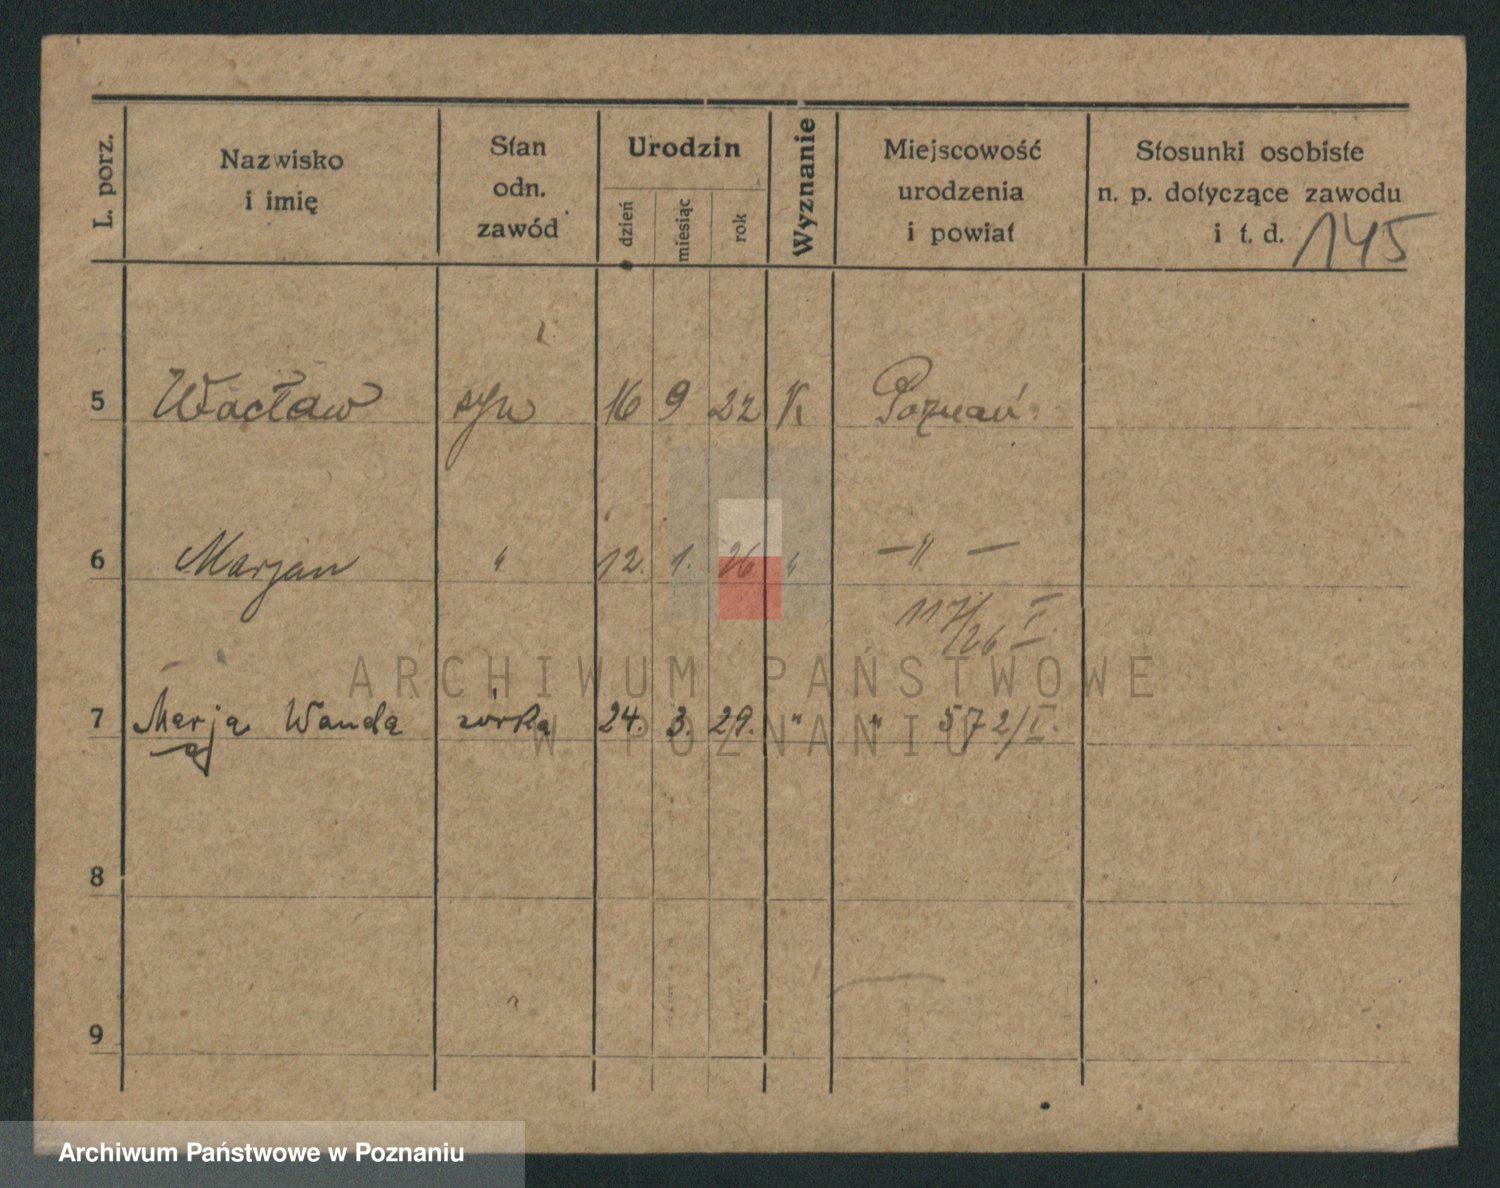 L. porz.
Nazwisko
i imię
Stan
odn.
zawód
Urodzin
dzień
miesiąc
rok
Wyznanie
Miejscowość
urodzenia
i powiat
Stosunki osobiste
n. p. dotyczące zawodu
i t. d. 145
5 Wacław syn 16 9 22 K Poznań.
6 Marjan " 12. 1. 26 " — " —
117/26 I.
7 Marja Wanda córka 24. 3. 29. " " 572/I.
8
9
ARCHIWUM PAŃSTWOWE
W POZNANIU
Archiwum Państwowe w Poznaniu